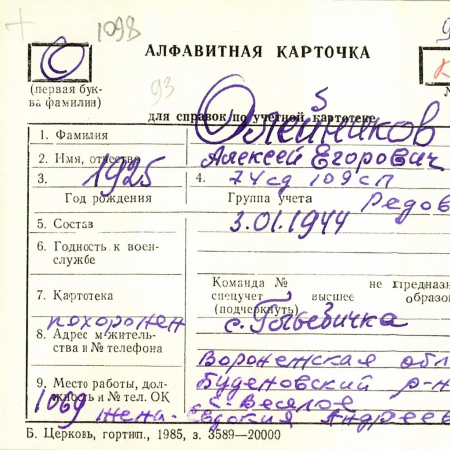 1098
О
АЛФАВИТНАЯ КАРТОЧКА
(первая бук-
ва фамилии)
93
для справок по учетной картотеке
1. Фамилия Олейников
2. Имя, отчество Алексей Егорович
3. 1925 4. 74сд 109сп
Год рождения Группа учета Редов
5. Состав 3.01.1944
6. Годность к воен-
службе
Команда № не предназн
7. Картотека спецучет высшее образо
(подчеркнуть)
похоронен с.
8. Адрес м/житель-
ства и № телефона
Воронежская обл
9. Место работы, дол- Буденовский р-н
жность и № тел. ОК с. Веселое
1069 жена - Евдокия Андреев
Б. Церковь, гортип., 1985, з. 3589—20000